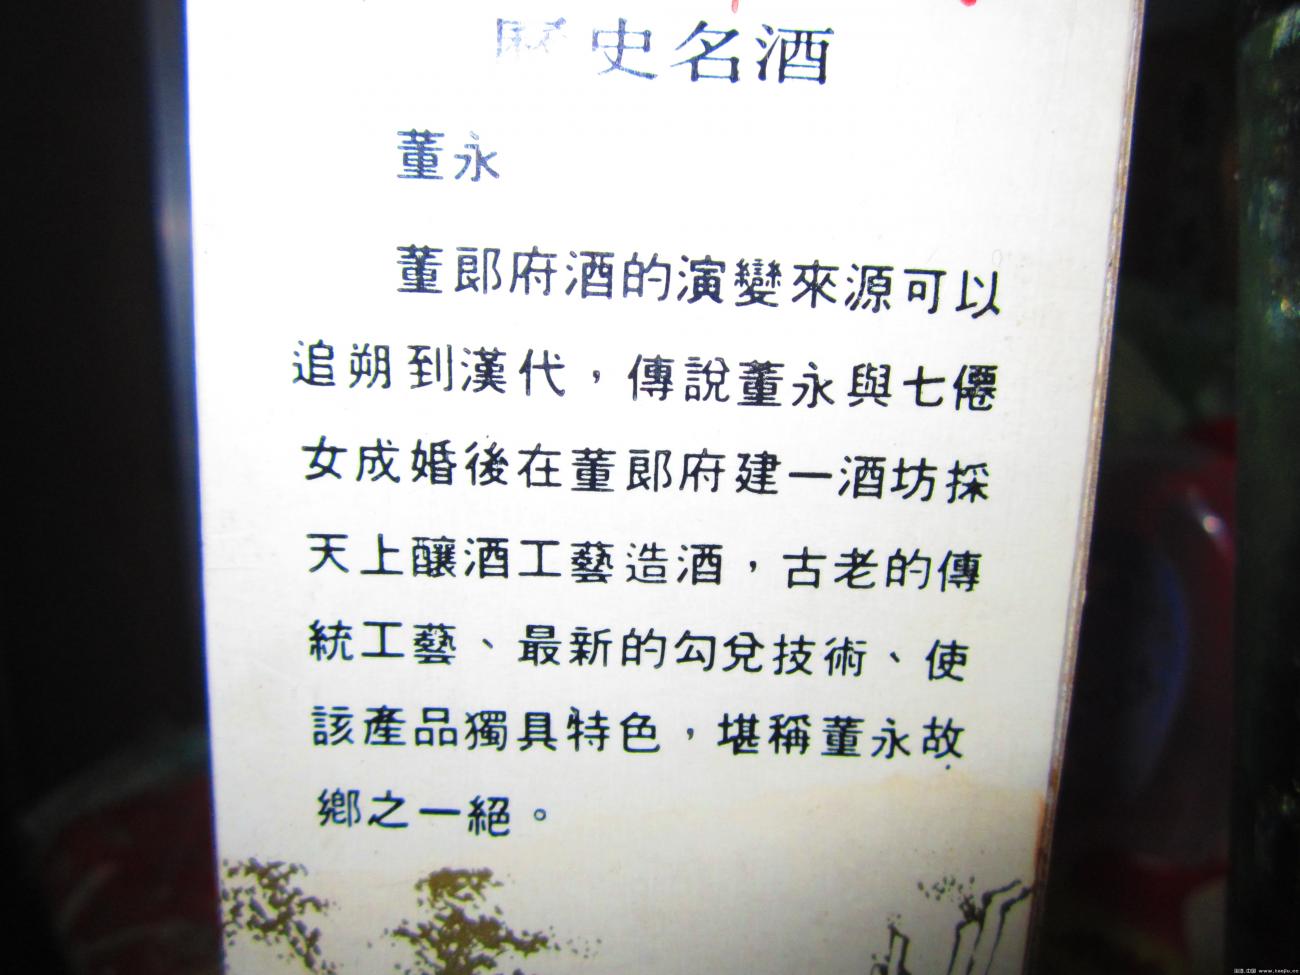 歷史名酒
董永
董郎府酒的演變來源可以
追朔到漢代，傳說董永與七僊
女成婚後在董郎府建一酒坊採
天上釀酒工藝造酒，古老的傳
統工藝、最新的勾兌技術、使
該產品獨具特色，堪稱董永故
鄉之一絕。